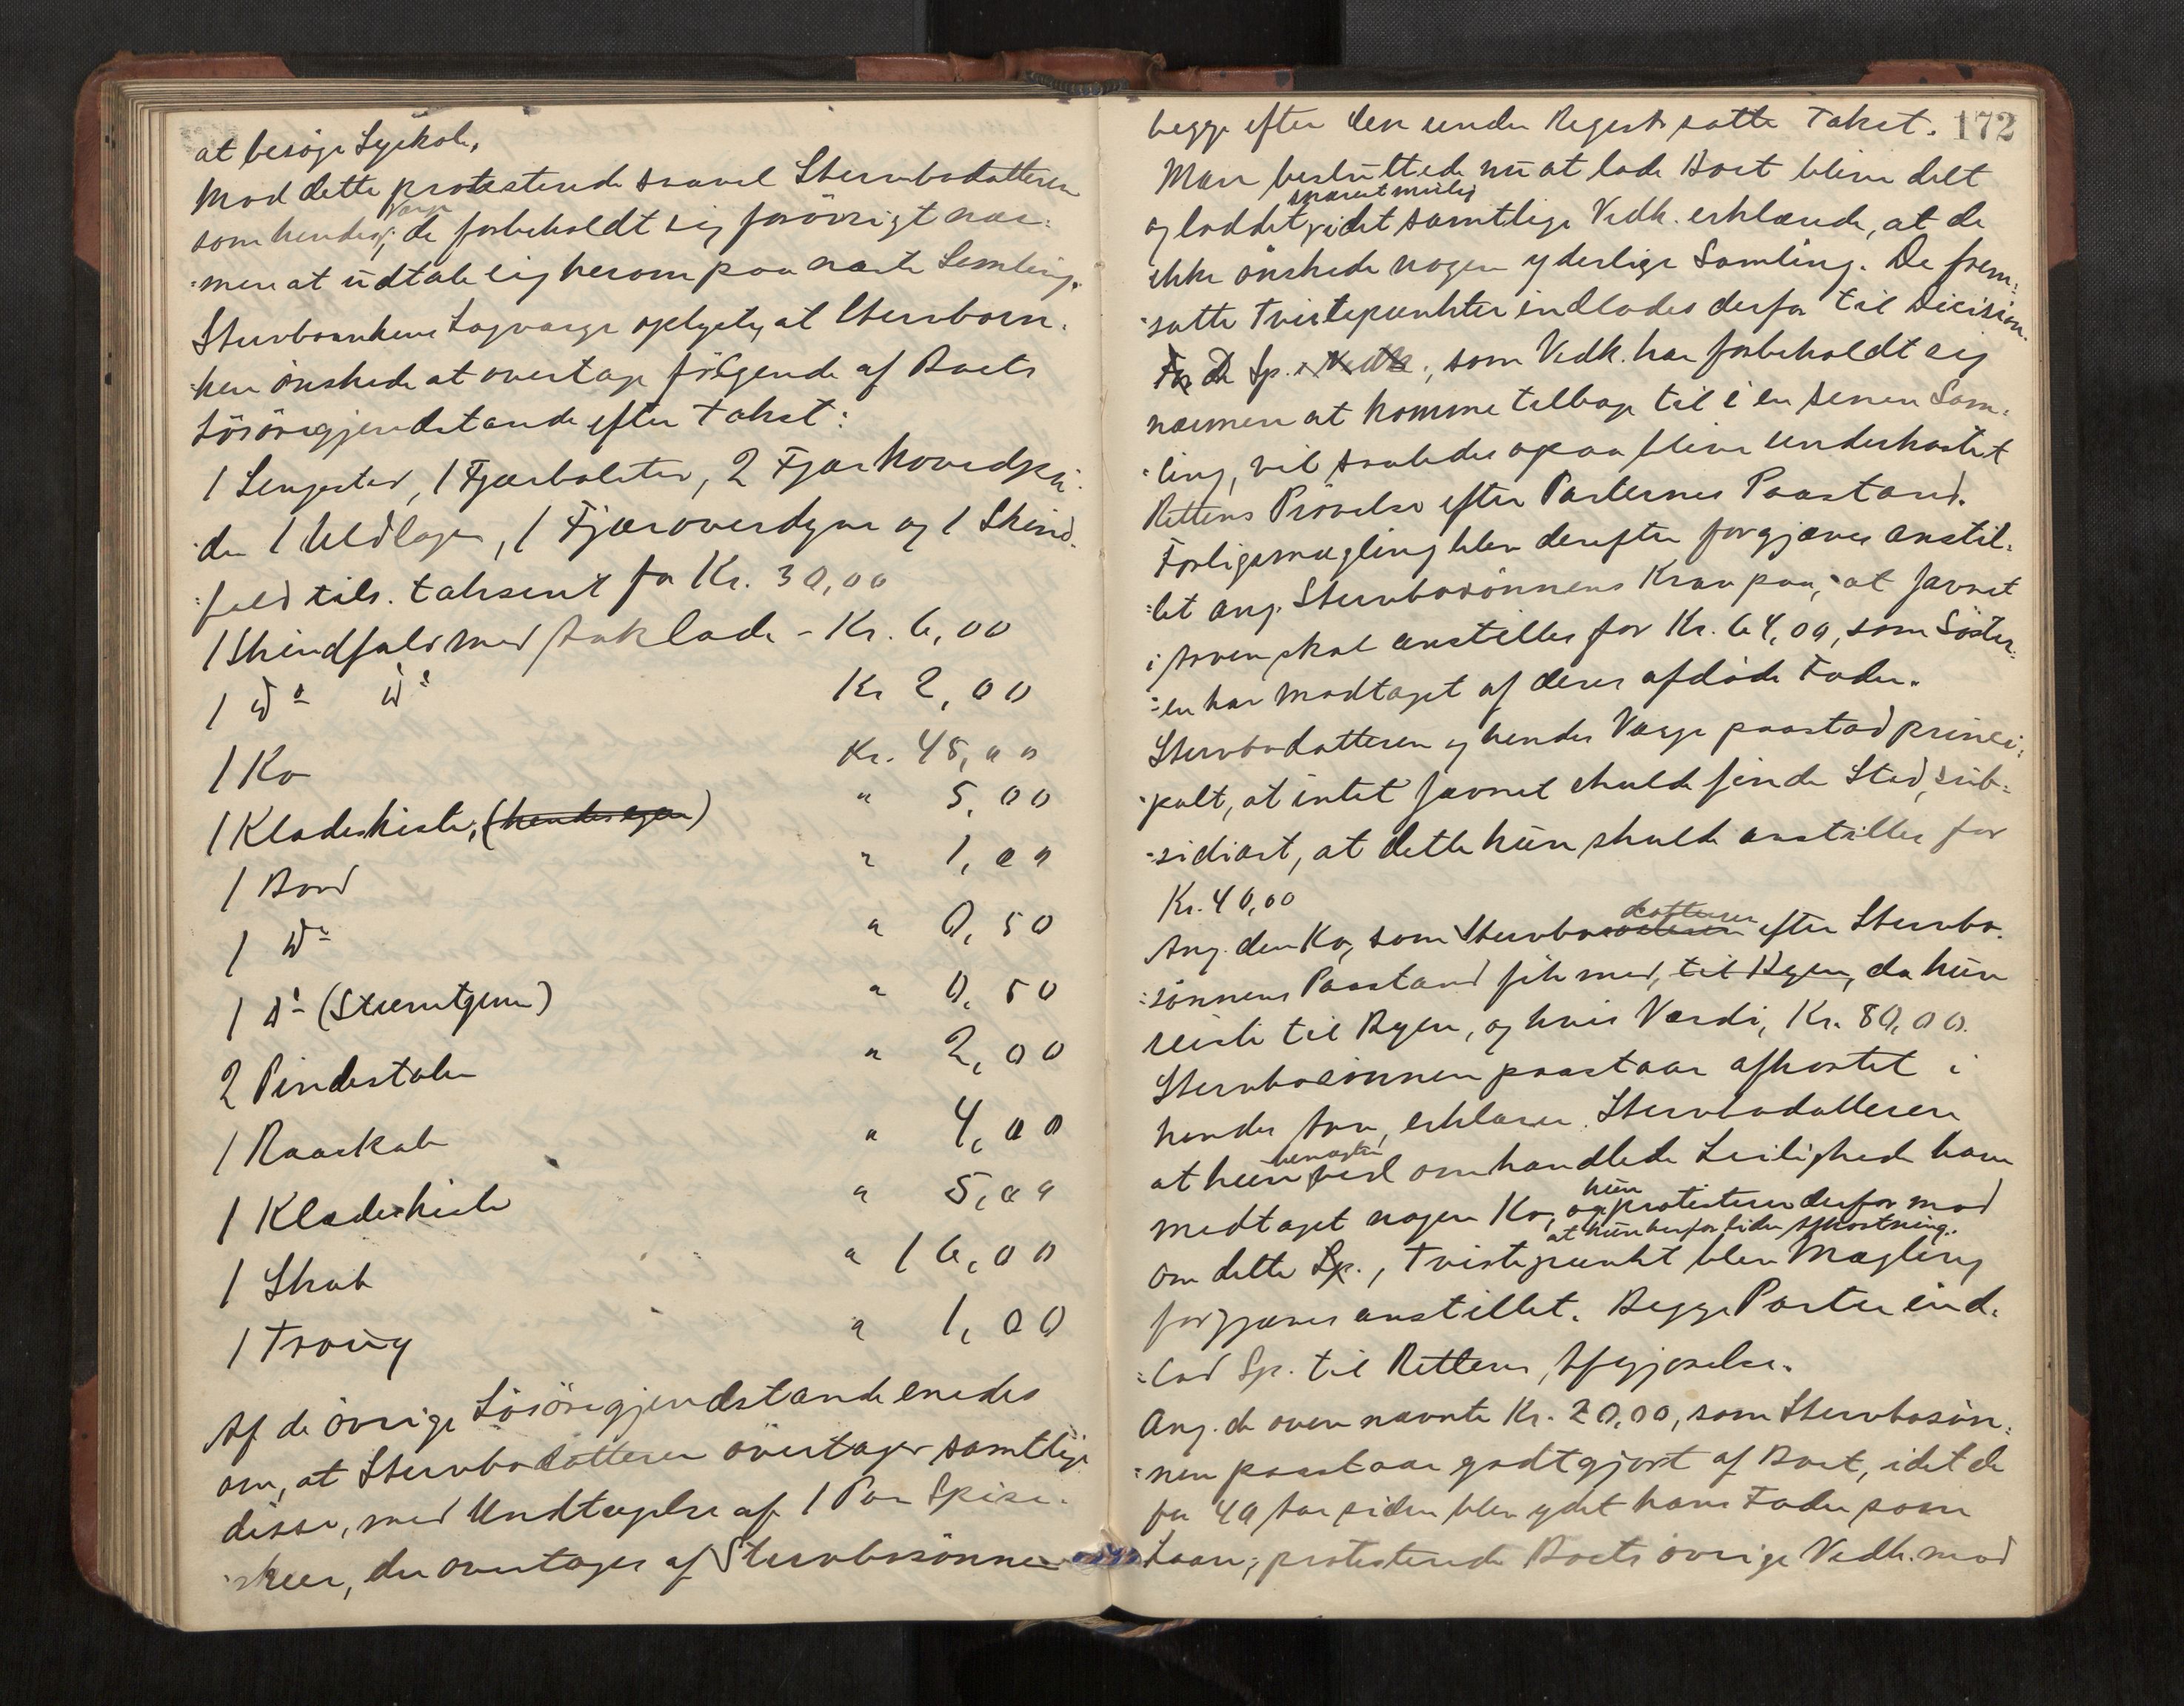 at besøge Syskole,
Mod dette protesterede saavel Stervbodatteren
som hendes Værge; de forbeholdt sig forøvrigt nær-
-men at udtale sig herom paa næste Samling.
Stervboenkens Lagværge oplyste, at Stervboen-
ken ønskede at overtage følgende af Boets
Løsøregjendstande efter Takst:
1 Sengested, 1 Fjærbolster, 2 Fjærhovedpu-
-der 1 Uldlagen, 1 Fjæroverdyne og 1 Skind-
-feld tils. taxeret for Kr. 30,00
1 Skindfeld med Aaklæde - Kr. 6,00
1 do do Kr 2,00
1 Ko Kr. 45,00
1 Klædeskiste, (hendes egen) " 5,00
1 Bord " 1,00
1 do " 0,50
1 do (Stuentgem) " 0,50
2 Pindestole " 2,00
1 Raaskab " 4,00
1 Klædeskiste " 5,00
1 Skab " 16,00
1 Traug " 1,00
Af de øvrige Løsøregjendstande enedes
om, at Stervbodatteren overtager samtlige
disse, med Undtagelse af 1 Par Spise-
-skeer, der overtages af Stervbosønnen
172
begge efter den under Registr. satte Takst.
Man besluttede nu at lade Boet blive delt
og loddet snarest mulig idet samtlige Vedk. erklærede, at de
ikke ønskede nogen yderlige Samling. De frem-
-satte Tvistepunkter indlodes derfor til Decision.
De Sp., som Vedk. har forbeholdt sig
nærmere at komme tilbage til i en senere Sam-
-ling, vil saaledes ogsaa blive underkastet
Rettens Prøvelse efter Parternes Paastand.
Forligsmægling blev derefter forgjæves anstil-
-let ang. Stervbosønnens Krav paa, at Jævnet
i Arven skal anstilles for Kr. 64,00, som Søster-
-en har modtaget af deres afdøde Fader.
Stervbodatteren og hendes Værge paastod princi-
-palt, at intet Jævnet skulde finde Sted, sub-
-sidiært, at dette kun skulde anstilles for
Kr. 40,00
Ang. den Ko, som Stervbodatteren efter Stervbo-
-sønnens Paastand fik med, til Byen, da hun
reiste til Byen, og hvis Værdi, Kr. 80,00.
Stervbosønnen paastaar afkortet i
hendes Arv, erklærer Stervbodatteren
at hun benægter ved omhandlede Leilighed have
medtaget nogen Ko, og hun protesterer derfor mod
at hun herfor lider Afkortning.
Om dette Tvistepunkt blev Mægling
forgjæves anstillet. Begge Parter ind-
-lod Sp. til Rettens Afgjørelse.
Ang. de oven nævnte Kr. 20,00, som Stervbosøn-
-nen paastaar godtgjort af Boet, idet de
for 40 Aar siden blev ydet hans Fader som
Laan; protesterede Boets øvrige Vedk. mod